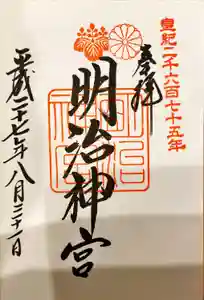 皇紀二千六百七十五年
奉拝
明治神宮
平成二十七年八月三十一日